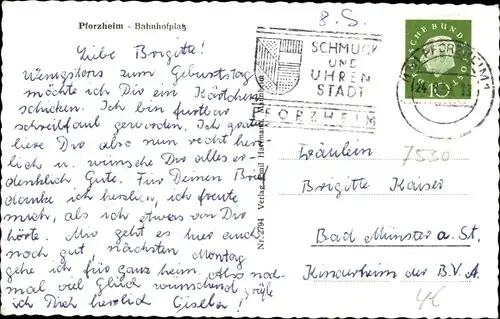 Pforzheim - Bahnhofplatz
8. S.
Liebe Brigitte!
Wenigstens zum Geburtstag
möchte ich Dir ein Kärtchen
schicken. Ich bin furtbar
schreibfaul geworden. Ich gratu
liere Dir also nun recht herz-
lich u. wünsche Dir alles er-
denklich Gute. Für Deinen Brief
danke ich herzlich, ich freute
mich, als ich etwas von Dir
hörte. Mir geht es hier auch
noch gut nächsten Montag
gehe ich für ganz heim. Also noch-
mal viel Glück wünschend grüße
ich Dich herzlich Gisela!
Nr. 2794 Verlag Emil Hartmann, Mannheim
SCHMUCK
UND
UHREN
STADT
PFORZHEIM
PFORZHEIM
10
Fräulein
7530
Brigitte Kaiser
Bad Münster a. St.
Kinderheim der B.V.A.